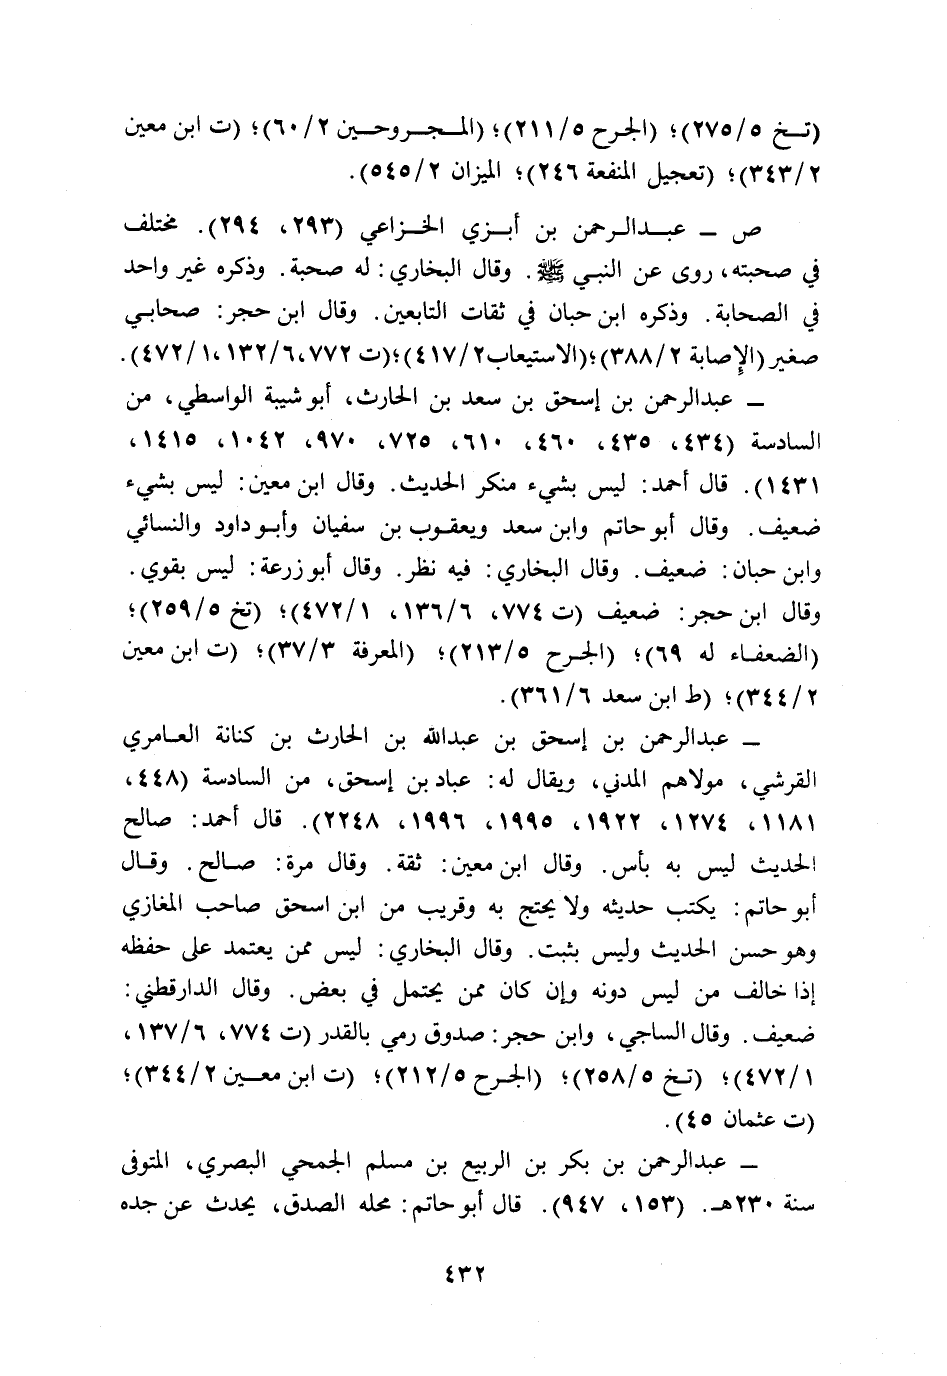 (تـخ ٢٧٥/٥)؛ (الجرح ٢١١/٥)؛ (المـجـروحـين ٦٠/٢)؛ (ت ابن معين
٣٤٣/٢)؛ (تعجيل المنفعة ٢٤٦)؛ الميزان ٥٤٥/٢).
ص ــ عبـدالـرحمن بن أبـزي الخـزاعي (٢٩٣، ٢٩٤). مختلف
في صحبته، روى عن النبي ﷺ. وقال البخاري: له صحبة. وذكره غير واحد
في الصحابة. وذكره ابن حبان في ثقات التابعين. وقال ابن حجر: صحابي
صغير (الإصابة ٣٨٨/٢)؛(الاستيعاب٤١٧/٢)؛(ت ٧٧٢،١٣٢/٦،٤٧٢/١).
ــ عبدالرحمن بن إسحق بن سعد بن الحارث، أبو شيبة الواسطي، من
السادسة (٤٣٤، ٤٣٥، ٤٦٠، ٦١٠، ٧٢٥، ٩٧٠، ١٠٤٢، ١٤١٥،
١٤٣١). قال أحمد: ليس بشيء منكر الحديث. وقال ابن معين: ليس بشيء
ضعيف. وقال أبو حاتم وابن سعد ويعقوب بن سفيان وأبو داود والنسائي
وابن حبان: ضعيف. وقال البخاري: فيه نظر. وقال أبو زرعة: ليس بقوي.
وقال ابن حجر: ضعيف (ت ٧٧٤، ١٣٦/٦، ٤٧٢/١)؛ (تخ ٢٥٩/٥)؛
(الضعفاء له ٦٩)؛ (الجرح ٢١٣/٥)؛ (المعرفة ٣٧/٣)؛ (ت ابن معين
٣٤٤/٢)؛ (ط ابن سعد ٣٦١/٦).
ــ عبدالرحمن بن إسحق بن عبدالله بن الحارث بن كنانة العـامري
القرشي، مولاهم المدني، ويقال له: عباد بن إسحق، من السادسة (٤٤٨،
١١٨١، ١٢٧٤، ١٩٢٢، ١٩٩٥، ١٩٩٦، ٢٢٤٨). قال أحمد: صالح
الحديث ليس به بأس. وقال ابن معين: ثقة. وقال مرة: صـالح. وقـال
أبو حاتم: يكتب حديثه ولا يحتج به وقريب من ابن اسحق صاحب المغازي
وهو حسن الحديث وليس بثبت. وقال البخاري: ليس ممن يعتمد على حفظه
إذا خالف من ليس دونه وإن كان ممن يحتمل في بعض. وقال الدارقطني:
ضعيف. وقال الساجي، وابن حجر: صدوق رمي بالقدر (ت ٧٧٤، ١٣٧/٦،
٤٧٢/١)؛ (تـخ ٢٥٨/٥)؛ (الجرح ٢١٢/٥)؛ (ت ابن معـين ٣٤٤/٢)؛
(ت عثمان ٤٥).
ــ عبدالرحمن بن بكر بن الربيع بن مسلم الجمحي البصري، المتوفى
سنة ٢٣٠هـ. (١٥٣، ٩٤٧). قال أبو حاتم: محله الصدق، يحدث عن جده
٤٣٢